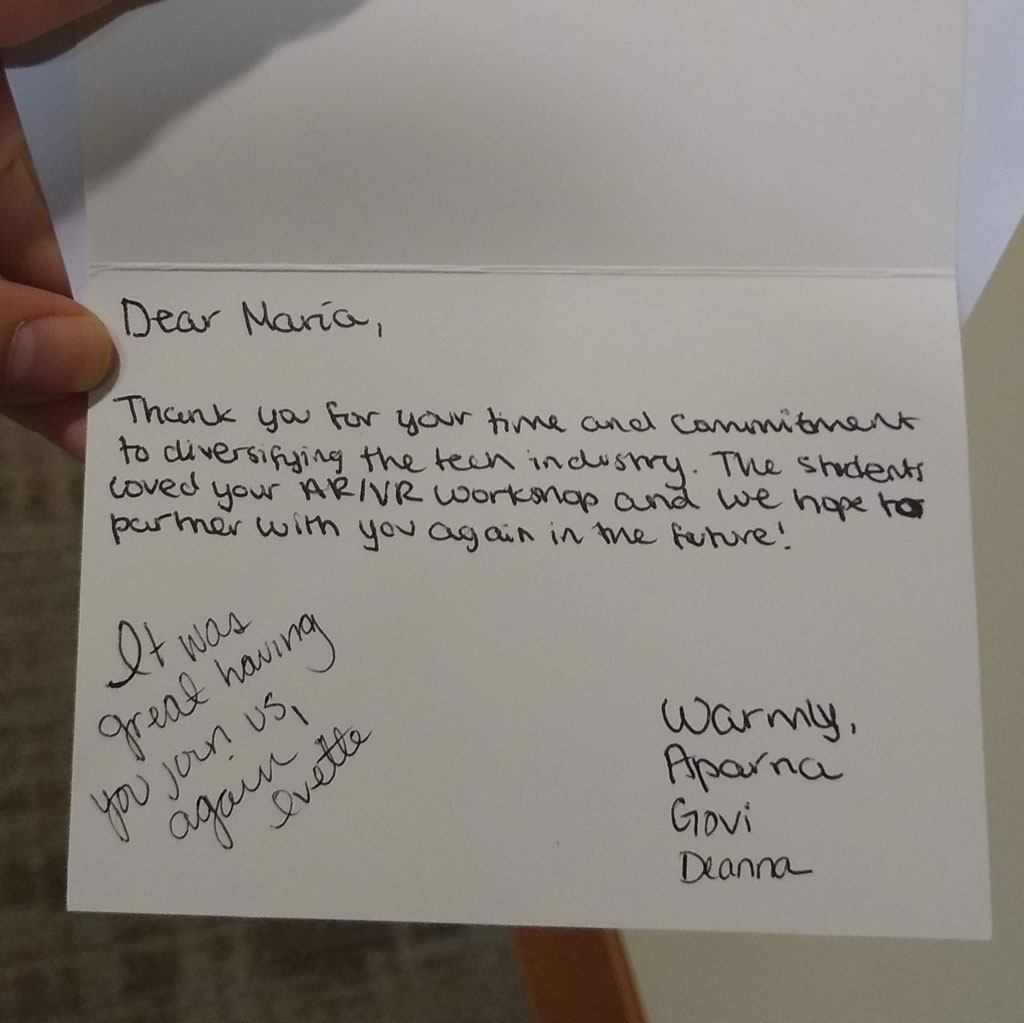 Dear María,
Thank you for your time and commitment
to diversifying the tech industry. The students
loved your AR/VR workshop and we hope to
partner with you again in the future!
It was
great having
you join us,
again
evette
Warmly,
Aparna
Govi
Deanna